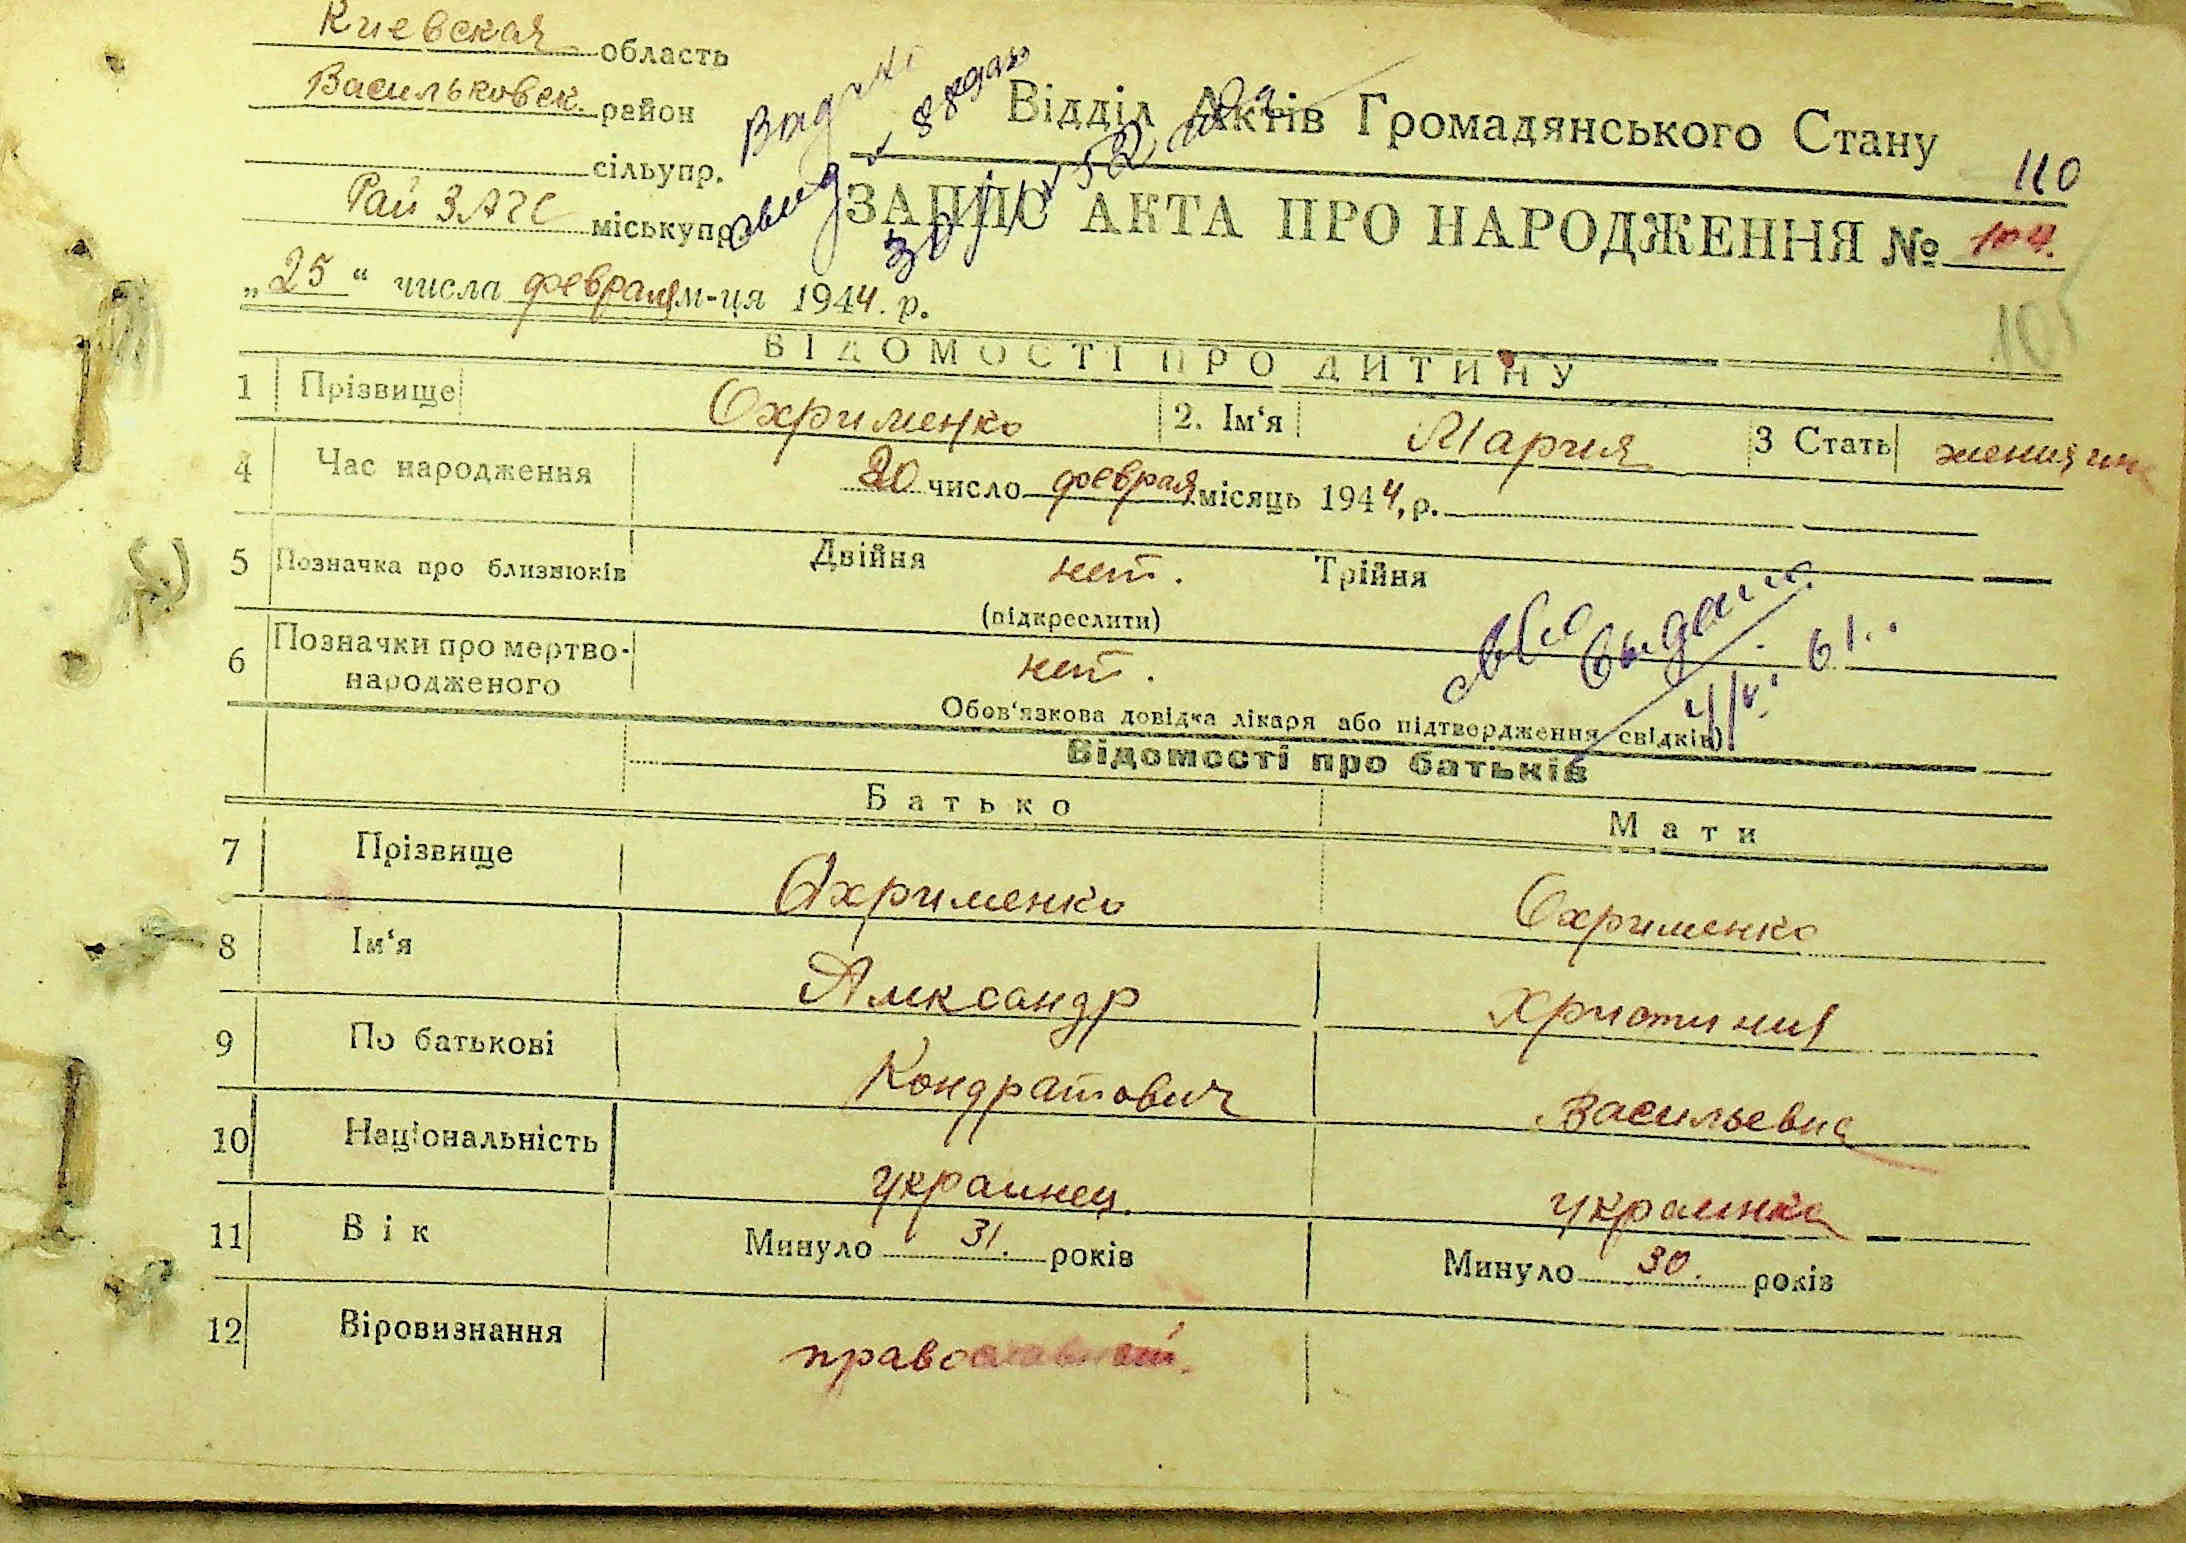 Киевская область
Васильковск. район
сільупр.
Рай ЗАГС міськупр.
"25" числа февраля м-ця 1944. р.
Відділ Актів Громадянського Стану
110
ЗАПИС АКТА ПРО НАРОДЖЕННЯ № 104.
105
ВІДОМОСТІ ПРО ДИТИНУ
1 Прізвище Охрименко 2. Ім'я Мария 3 Стать
4 Час народження 20 число февраля місяць 1944, р.
5 Позначка про близнюків Двійня нет. Трійня
(підкреслити)
6 Позначки про мертво-
народженого нет.
выдано 61.
Обов'язкова довідка лікаря або підтвердження свідків)
Відомості про батьків
Батько Мати
7 Прізвище Охрименко Охрименко
8 Ім'я Александр Христиния
9 По батькові Кондратович Васильевна
10 Національність украинец. украинка
11 Вік Минуло 31. років Минуло 30. років
12 Віровизнання православный.